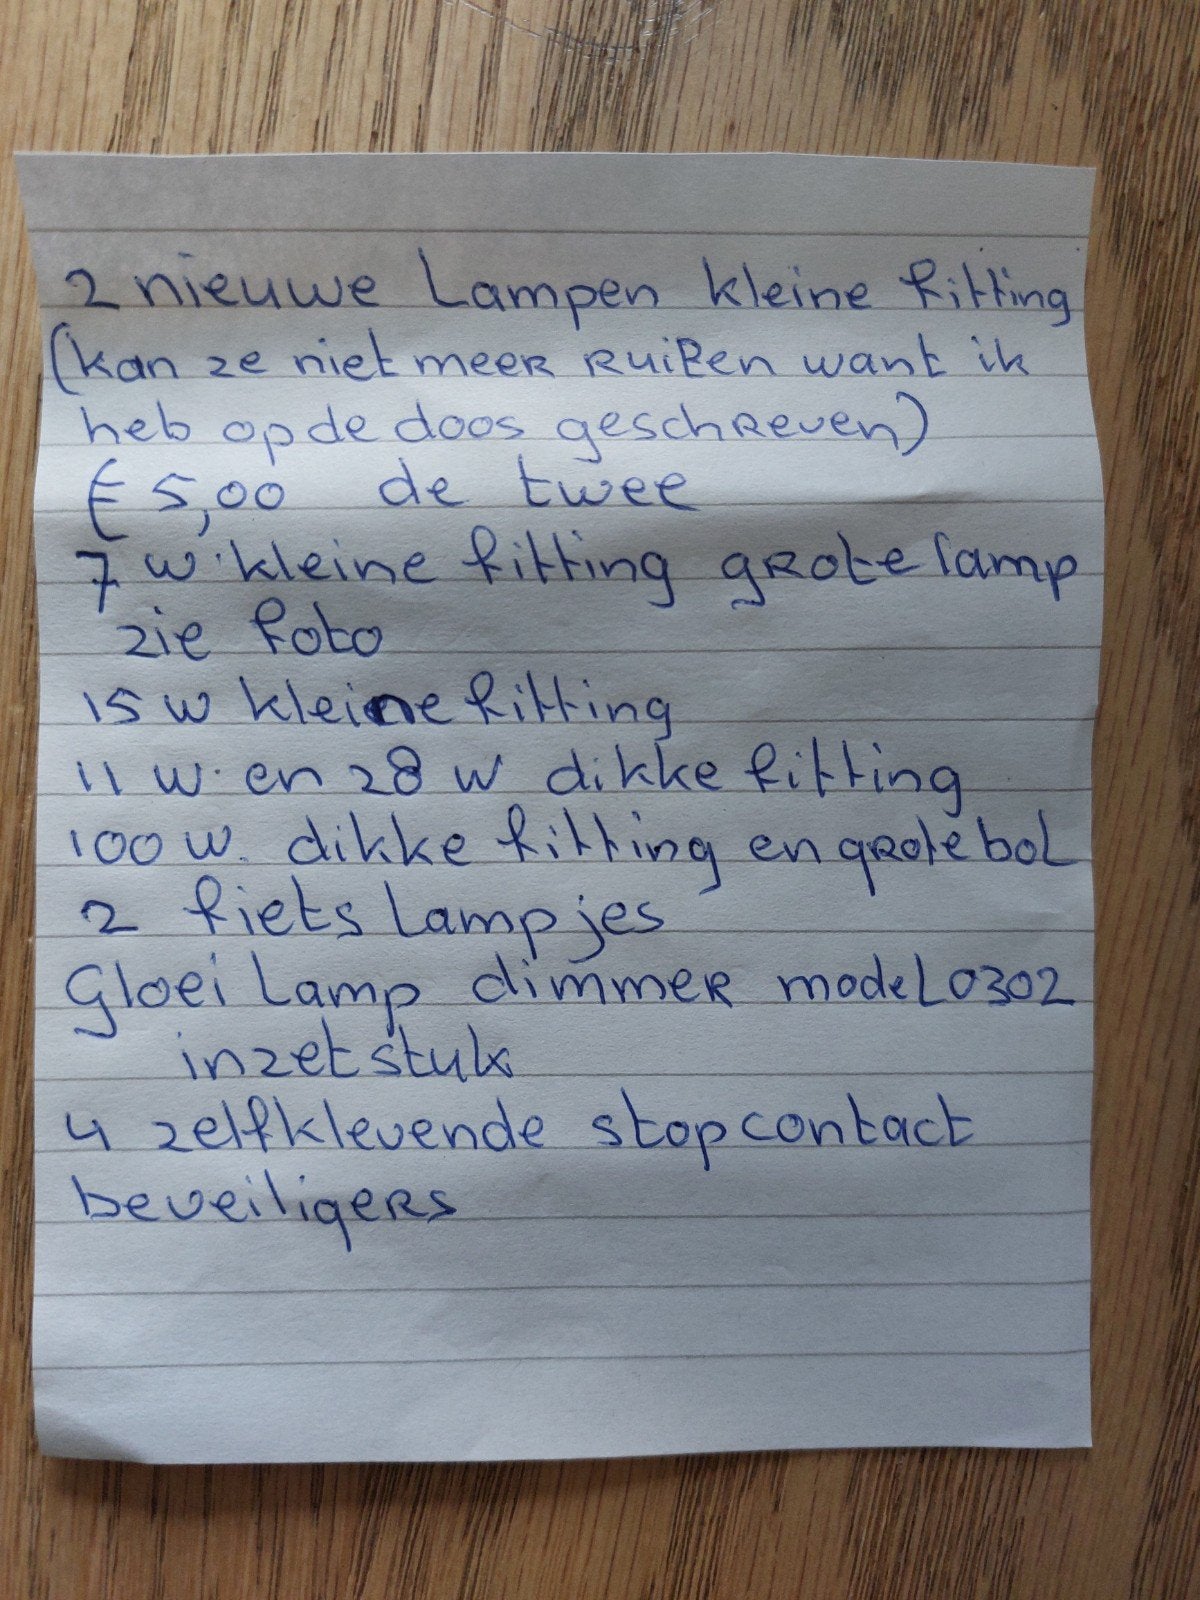 2 nieuwe Lampen kleine fitting
(kan ze niet meer Ruilen want ik
heb op de doos geschreven)
€ 5,00 de twee
7 w. kleine fitting grote lamp
zie foto
15 w kleine fitting
11 w. en 28 w dikke fitting
100 w. dikke fitting en grote bol
2 fietslampjes
Gloeilamp dimmer model 0302
inzetstuk
4 zelfklevende stopcontact
beveiligers